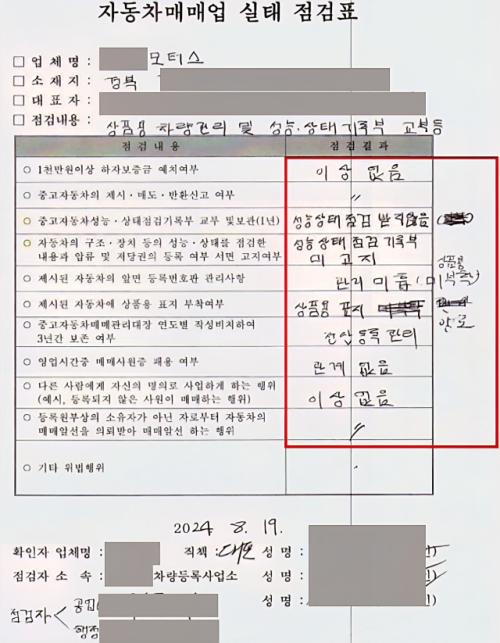 자동차매매업 실태 점검표
□ 업 체 명 : 모터스
□ 소 재 지 : 경북
□ 대 표 자 :
□ 점검내용 : 상품용 차량관리 및 성능·상태기록부 교부등
점 검 내 용 점 검 결 과
○ 1천만원이상 하자보증금 예치여부 이상 없음
○ 중고자동차의 제시·매도·반환신고 여부 〃
○ 중고자동차성능·상태점검기록부 교부 및보관(1년) 성능상태 점검 받지않음
○ 자동차의 구조·장치 등의 성능·상태를 점검한 성능상태 점검 기록부
내용과 압류 및 저당권의 등록 여부 서면 고지여부 미 고지
○ 제시된 자동차의 앞면 등록번호판 관리사항 관리 미흡 (미부착)
상품용
○ 제시된 자동차에 상품용 표지 부착여부 상품용 표지
○ 중고자동차매매관리대장 연도별 작성비치하여 전산등록 관리
3년간 보존 여부
○ 영업시간중 매매사원증 패용 여부 관계 없음
○ 다른 사람에게 자신의 명의로 사업하게 하는 행위 이상 없음
(예시, 등록되지 않은 사원이 매매하는 행위)
○ 등록원부상의 소유자가 아닌 자로부터 자동차의 〃
매매알선을 의뢰받아 매매알선 하는 행위
○ 기타 위법행위
2024 8. 19.
확인자 업체명 : 직책 : 대표 성 명 :
점검자 소 속 : 차량등록사업소 성 명 :
성 명 :
점검자 공업
행정